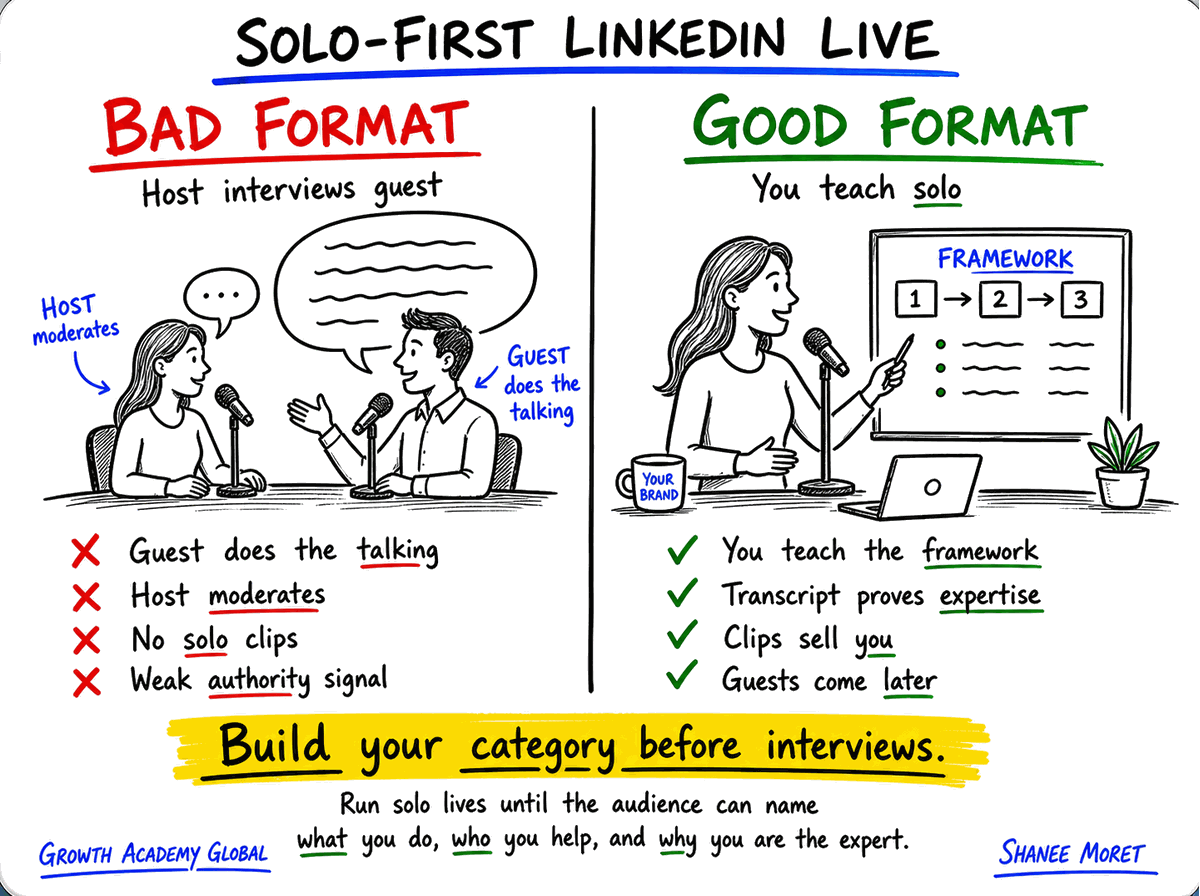 SOLO-FIRST LINKEDIN LIVE
BAD FORMAT
Host interviews guest
HOST
moderates
...
GUEST
does the
talking
❌ Guest does the talking
❌ Host moderates
❌ No solo clips
❌ Weak authority signal
GOOD FORMAT
You teach solo
FRAMEWORK
1 → 2 → 3
YOUR
BRAND
✓ You teach the framework
✓ Transcript proves expertise
✓ Clips sell you
✓ Guests come later
Build your category before interviews.
Run solo lives until the audience can name
what you do, who you help, and why you are the expert.
GROWTH ACADEMY GLOBAL
SHANEE MORET